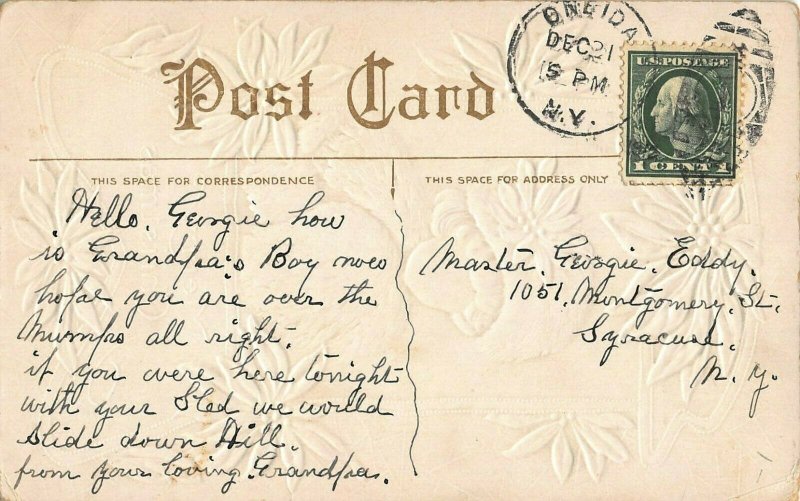 Post Card
ONEIDA
DEC 21
5 PM
N.Y.
U.S. POSTAGE
1 CENT 1
THIS SPACE FOR CORRESPONDENCE
THIS SPACE FOR ADDRESS ONLY
Hello, Georgie how
is Grandpa's Boy now
hope you are over the
Mumps all right.
if you were here tonight
with your Sled we would
slide down Hill.
from your loving Grandpa.
Master. Georgie. Eddy.
1051. Montgomery. St.
Syracuse.
N. Y.